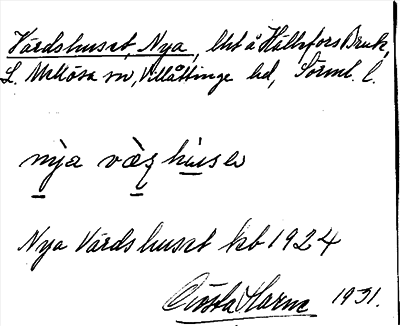 Värdshuset, Nya, lht å Hälleforsbruk,
L. Mellösa sn, Villåttinge hd, Sörml. l.
nỳa væ̀ʒhuseʋ
Nya Värdshuset kb 1924
Gösta 1931.